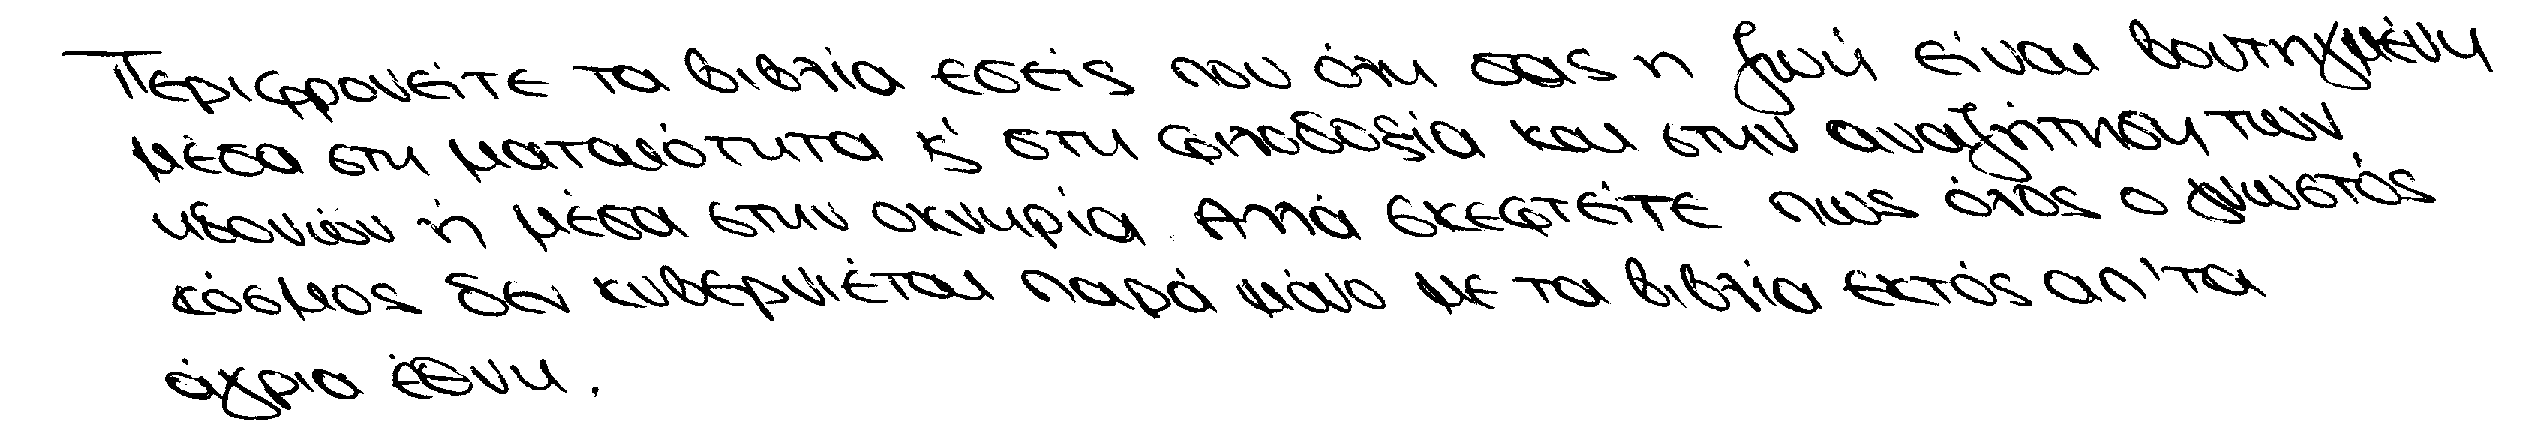 Περιφρονείτε τα βιβλία εσείς που όλη σας η ζωή είναι βουτηγμένη
μέσα στη ματαιότητα κ' στη φιλοδοξία και στην αναζήτηση των
ηδονών ή μέσα στην οκνηρία. Αλλά σκεφτείτε πως όλος ο γνωστός
κόσμος δεν κυβερνιέται παρά μόνο με τα βιβλία εκτός απ' τα
άγρια έθνη.